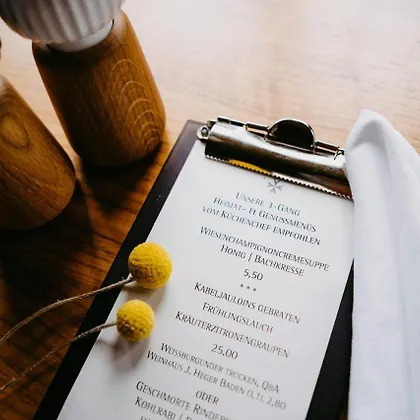 Unsere 3-Gang
Heimat- & Genussmenüs
vom Küchenchef empfohlen
Wiesenchampignoncremesuppe
Honig | Bachkresse
5,50
***
Kabeljauloins gebraten
Frühlingslauch
Kräuterzitronengraupen
25,00
Weißburgunder trocken, QbA
Weinhaus J. Heger Baden 0,1l 2,80
oder
Geschmorte Rinder
Kohlrabi